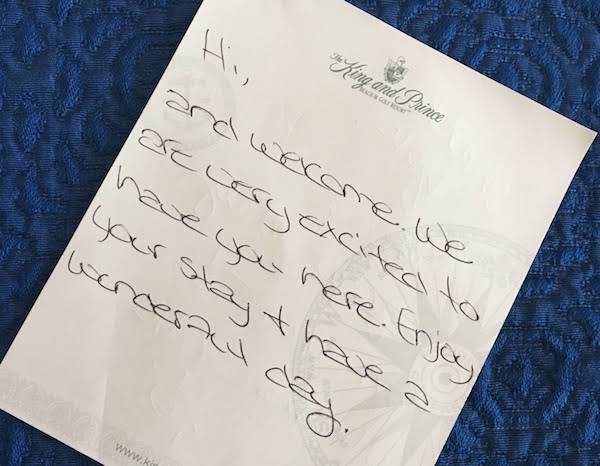 The King and Prince
BEACH & GOLF RESORT
Hi,
and welcome. We
are very excited to
have you here. Enjoy
your stay + have a
wonderful day.
www.kin